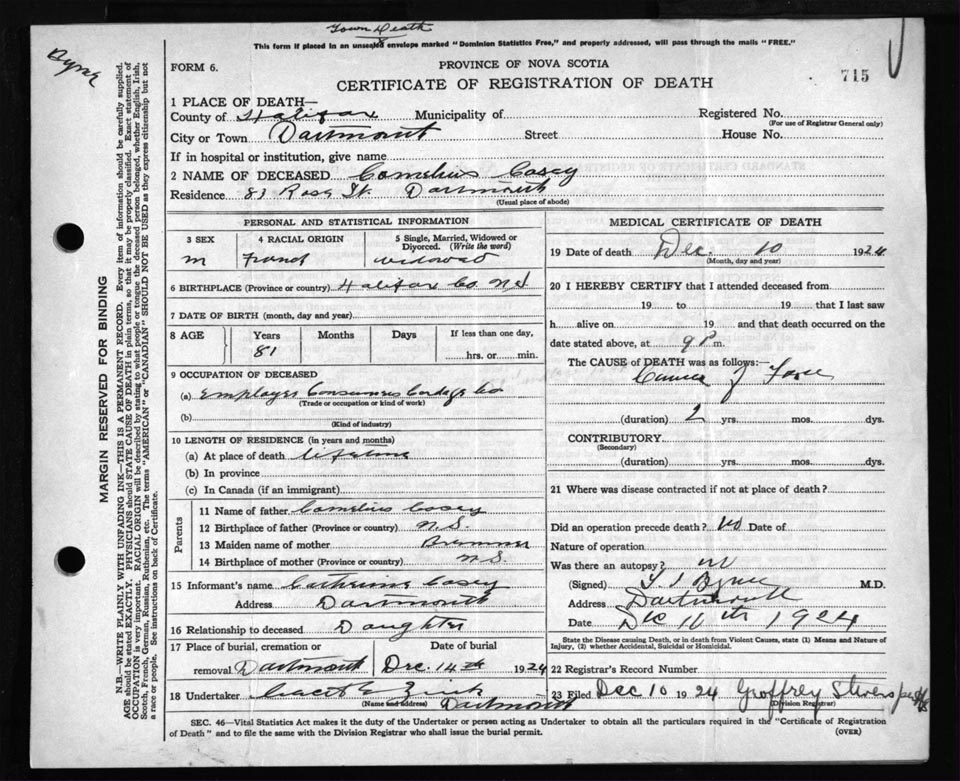 Town Death
This form if placed in an unsealed envelope marked "Dominion Statistics Free," and properly addressed, will pass through the mails "FREE."
Byrne
FORM 6.
PROVINCE OF NOVA SCOTIA
715
CERTIFICATE OF REGISTRATION OF DEATH
MARGIN RESERVED FOR BINDING
N.B.—WRITE PLAINLY WITH UNFADING INK—THIS IS A PERMANENT RECORD. Every item of information should be carefully supplied.
AGE should be stated EXACTLY. PHYSICIANS should STATE CAUSE OF DEATH in plain terms, so that it may be properly classified. Exact statement of
OCCUPATION is very important. RACIAL ORIGIN will be described by stating to what people or tongue the deceased person belonged, whether English, Irish,
Scotch, French, German, Russian, Ruthenian, etc. The terms "AMERICAN" or "CANADIAN" SHOULD NOT BE USED as they express citizenship but not
a race or people. See instructions on back of Certificate.
1 PLACE OF DEATH—
County of Halifax Municipality of Registered No.
(For use of Registrar General only)
City or Town Dartmouth Street House No.
If in hospital or institution, give name
2 NAME OF DECEASED Cornelius Casey
Residence 83 Rose St. Dartmouth
(Usual place of abode)
PERSONAL AND STATISTICAL INFORMATION
3 SEX 4 RACIAL ORIGIN 5 Single, Married, Widowed or Divorced. (Write the word)
m widowed
6 BIRTHPLACE (Province or country) Halifax Co. N.S.
7 DATE OF BIRTH (month, day and year)
8 AGE Years Months Days If less than one day,
81 hrs. or min.
9 OCCUPATION OF DECEASED
(a) Employee Consumers Cordage Co
(Trade or occupation or kind of work)
(b)
(Kind of industry)
10 LENGTH OF RESIDENCE (in years and months)
(a) At place of death lifetime
(b) In province
(c) In Canada (if an immigrant)
Parents
11 Name of father Cornelius Casey
12 Birthplace of father (Province or country) N.S.
13 Maiden name of mother
14 Birthplace of mother (Province or country) N.S.
15 Informant's name Catherine Casey
Address Dartmouth
16 Relationship to deceased Daughter
17 Place of burial, cremation or removal Dartmouth Date of burial Dec. 14th 1924
18 Undertaker Zink
(Name and address) Dartmouth
MEDICAL CERTIFICATE OF DEATH
19 Date of death Dec. 10 1924
(Month, day and year)
20 I HEREBY CERTIFY that I attended deceased from
19 to 19 that I last saw
h alive on 19 and that death occurred on the
date stated above, at 9 P m.
The CAUSE of DEATH was as follows:—
(duration) 2 yrs. mos. dys.
CONTRIBUTORY
(Secondary)
(duration) yrs. mos. dys.
21 Where was disease contracted if not at place of death?
Did an operation precede death? No Date of
Nature of operation
Was there an autopsy? no
(Signed) Byrne M.D.
Address Dartmouth
Date Dec 11th 1924
State the Disease causing Death, or in death from Violent Causes, state (1) Means and Nature of
Injury, (2) whether Accidental, Suicidal or Homicidal.
22 Registrar's Record Number
23 Filed Dec 10 1924 Geoffrey Stevens
(Division Registrar)
SEC. 46—Vital Statistics Act makes it the duty of the Undertaker or person acting as Undertaker to obtain all the particulars required in the "Certificate of Registration
of Death" and to file the same with the Division Registrar who shall issue the burial permit.
(OVER)